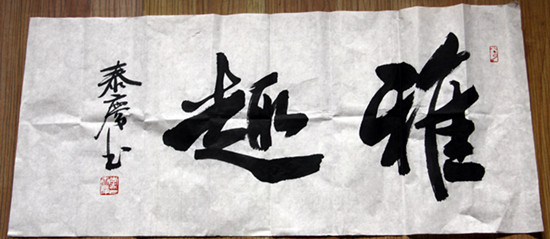 雅趣
泰慶书